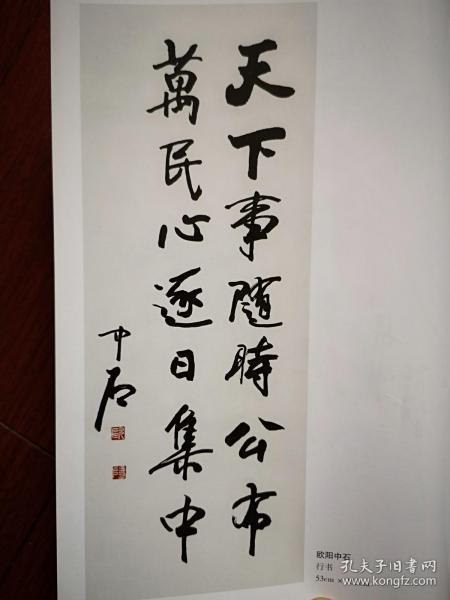 天下事隨時公布
萬民心逐日集中
中石
欧阳中石
行书
53cm ×
孔夫子旧书网
www.kongfz.com